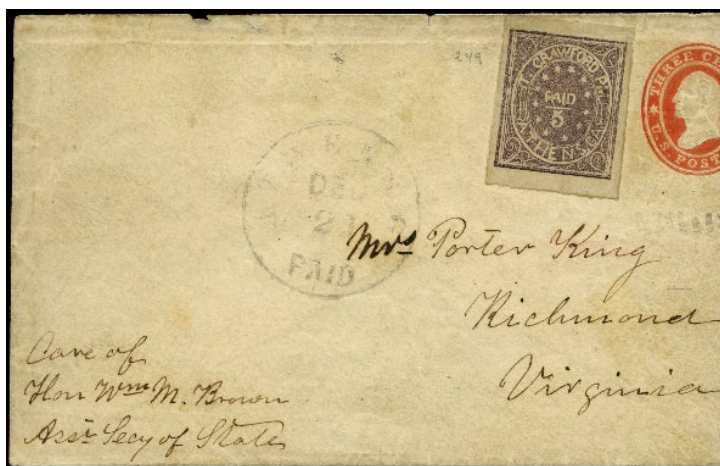 249
T. CRAWFORD P.M.
PAID
5
ATHENS, GA.
THREE CE
U.S. POST
DEC
21
PAID
Mrs Porter King
Richmond
Virginia
Care of
Hon Wm M. Brown
Asst Secy of State